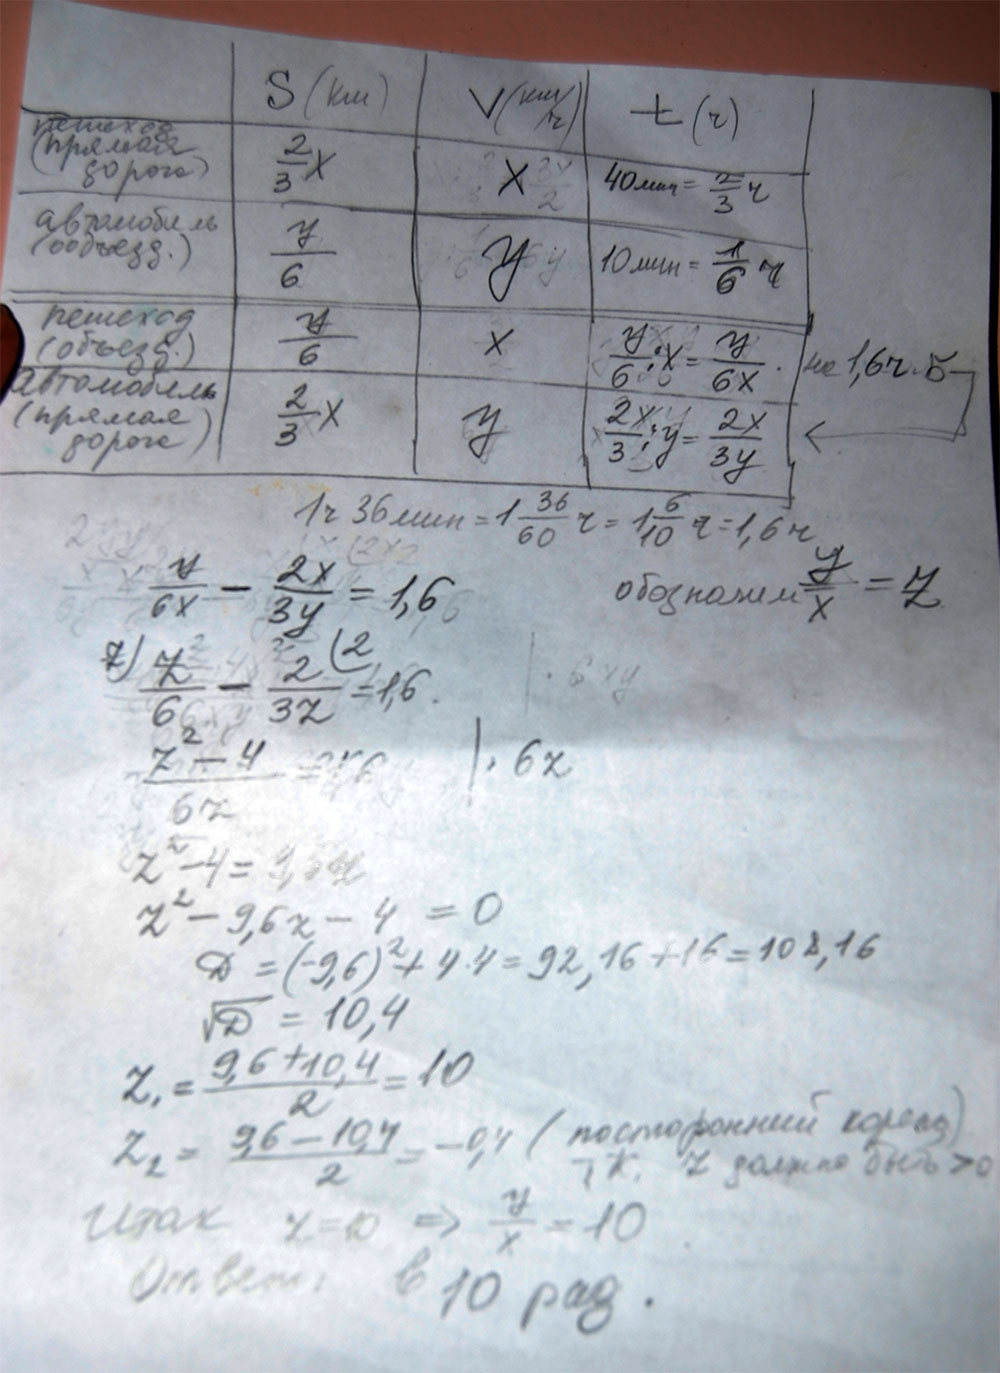 S (км) V (км/ч) t (ч)
пешеход (прямая дорога) 2/3 x x 40 мин = 2/3 ч
автомобиль (объезд.) y/6 y 10 мин = 1/6 ч
пешеход (объезд.) y/6 x y/6 : x = y/6x на 1,6 ч б
автомобиль (прямая дорога) 2/3 x y 2x/3 : y = 2x/3y
1 ч 36 мин = 1 36/60 ч = 1 6/10 ч = 1,6 ч
y/6x − 2x/3y = 1,6 обозначим y/x = z
z) z/6 − 2/3z (2 = 1,6. | · 6xy
z² − 4/6z | · 6z
z² − 4 =
z² − 9,6z − 4 = 0
D = (-9,6)² + 4·4 = 92,16 + 16 = 108,16
√D = 10,4
z₁ = 9,6 + 10,4/2 = 10
z₂ = 9,6 − 10,4/2 = −0,4 (посторонний корень)
т.к. z должно быть > 0
Итак z = 10 ⇒ y/x = 10
Ответ: в 10 раз.